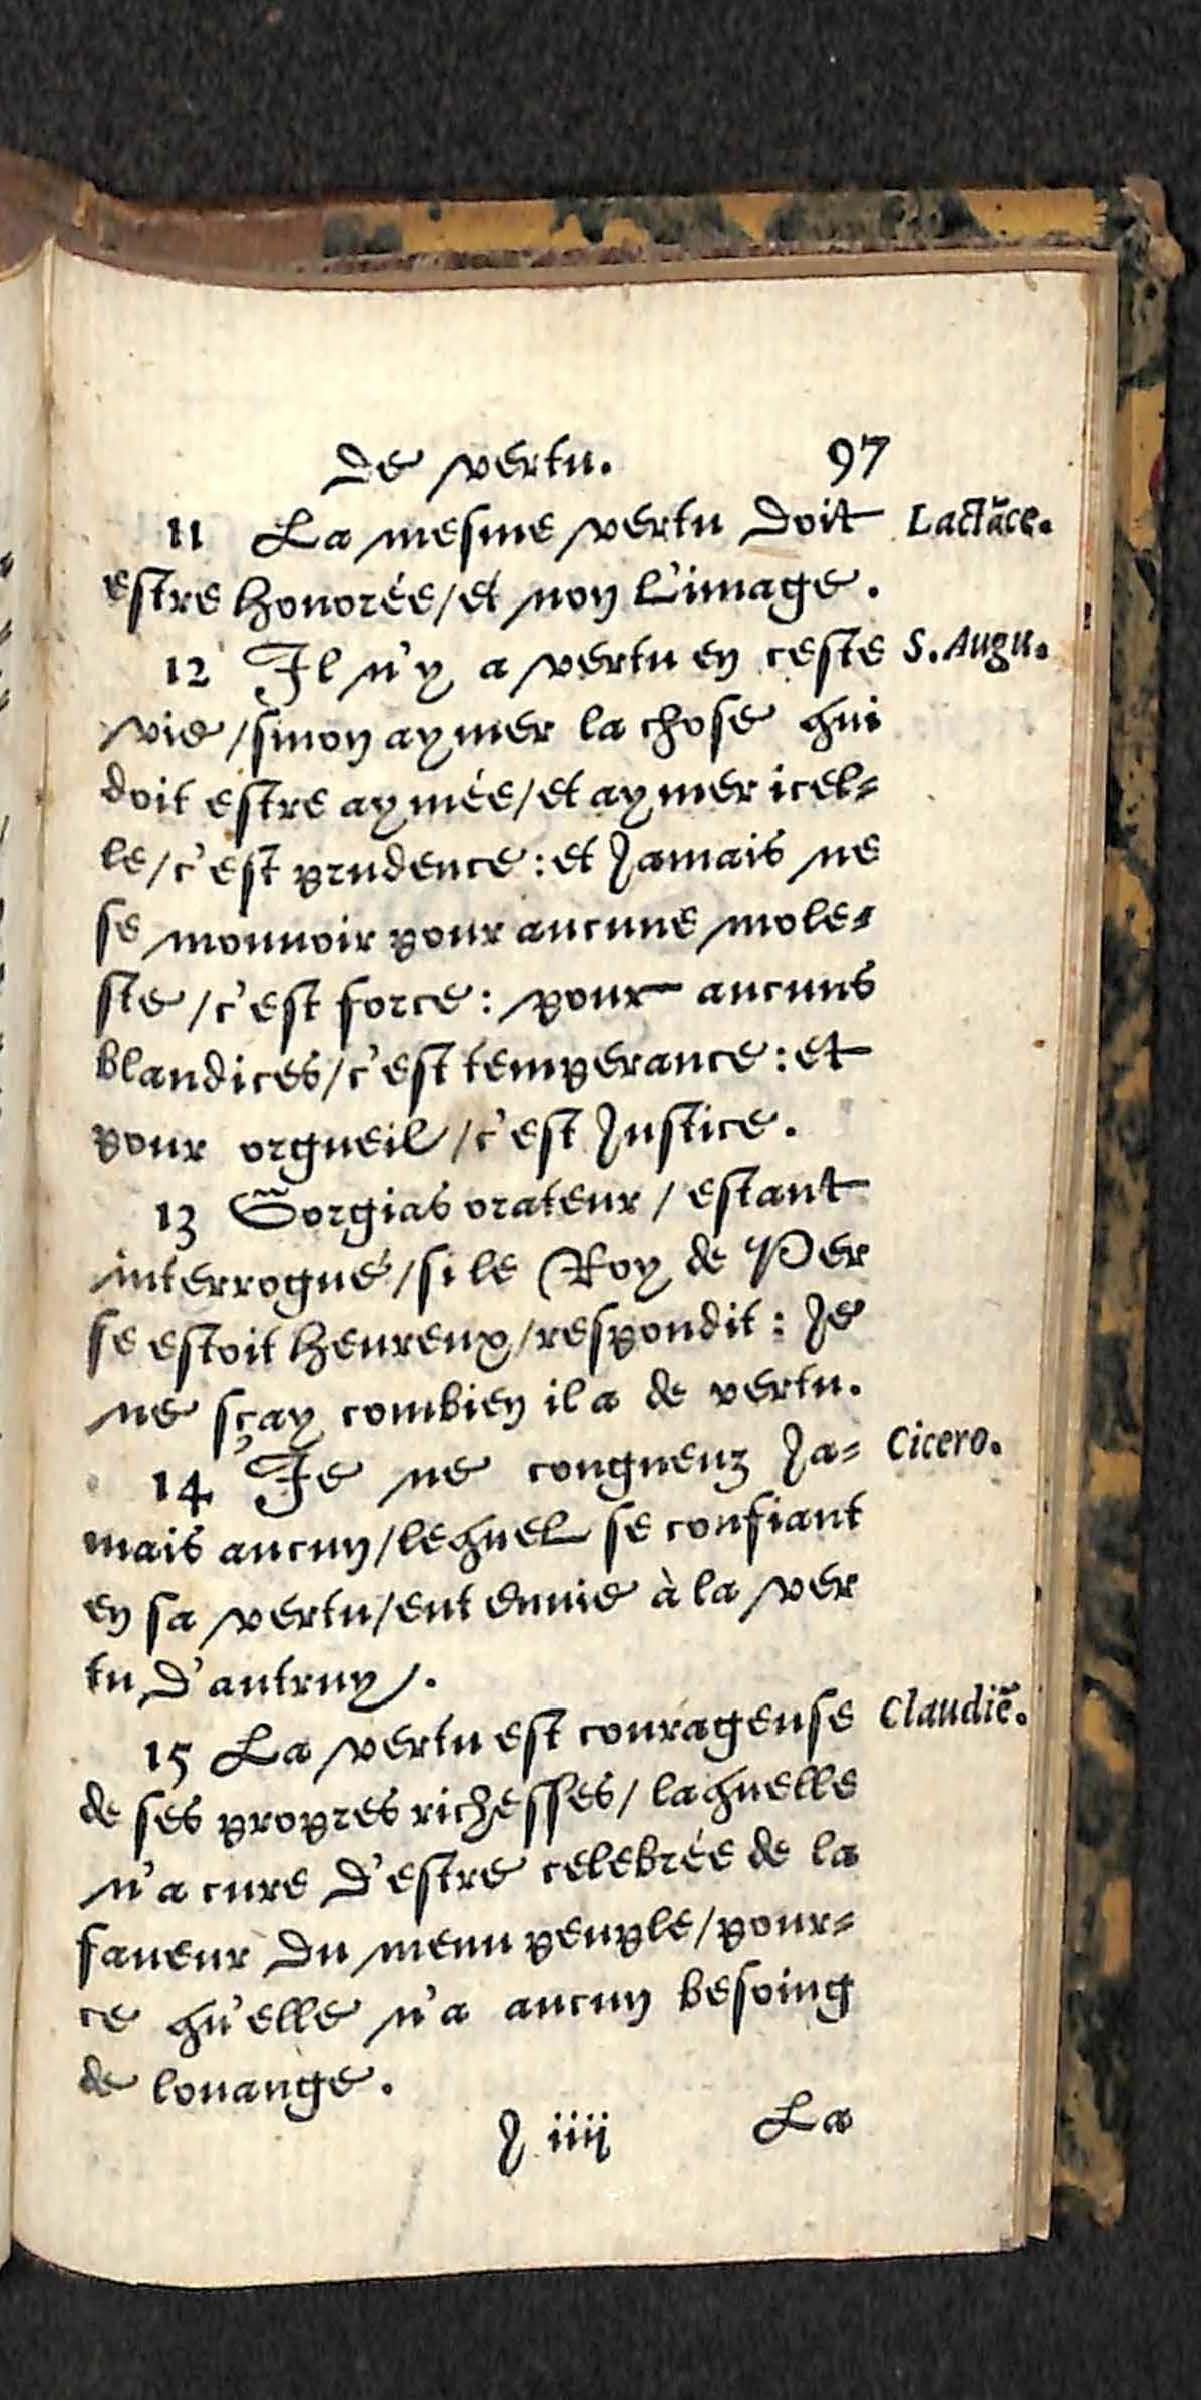 de vertu. 97
11 La mesme vertu doit Lactāce.
estre honorée/et non l'image.
12 Il n'y a vertu en ceste S. Augu.
vie/sinon aymer la chose qui
doit estre aymée/et aymer icel-
le/c'est prudence: et jamais ne
se mouuoir pour aucune mole-
ste/c'est force: pour aucuns
blandices/c'est temperance: et
pour orgueil/c'est justice.
13 Gorgias orateur/estant
interrogué/si le Roy de Per
se estoit heureux/respondit: Je
ne sçay combien il a de vertu.
14 Je ne congneuz ja- Cicero.
mais aucun/lequel se confiant
en sa vertu/eut enuie à la ver
tu d'autruy.
15 La vertu est courageuse Claudiē.
de ses propres richesses/laquelle
n'a cure d'estre celebrée de la
faueur du menu peuple/pour-
ce qu'elle n'a aucun besoing
de louange.
J iiij La